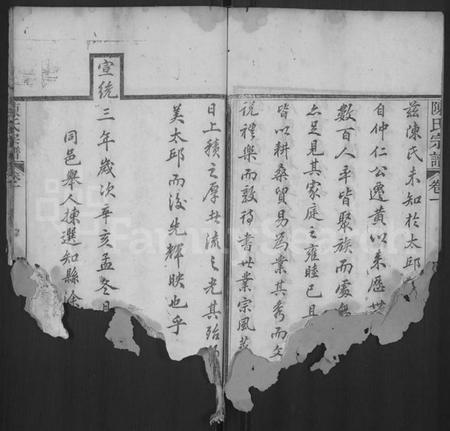 陳氏宗譜 卷一
茲陳氏未知於太邱
自仲仁公遷黃以來歷世
數百人半皆聚族而處
亦足見其家庭之雍睦已且
皆以耕桑貿易為業其秀而文
說禮樂而敦詩書世業宗風
日上積之厚者流之光其殆
美太邱而後先輝映也乎
宣統三年歲次辛亥孟冬月
同邑舉人揀選知縣
陳氏宗譜 卷一
FamilySearch